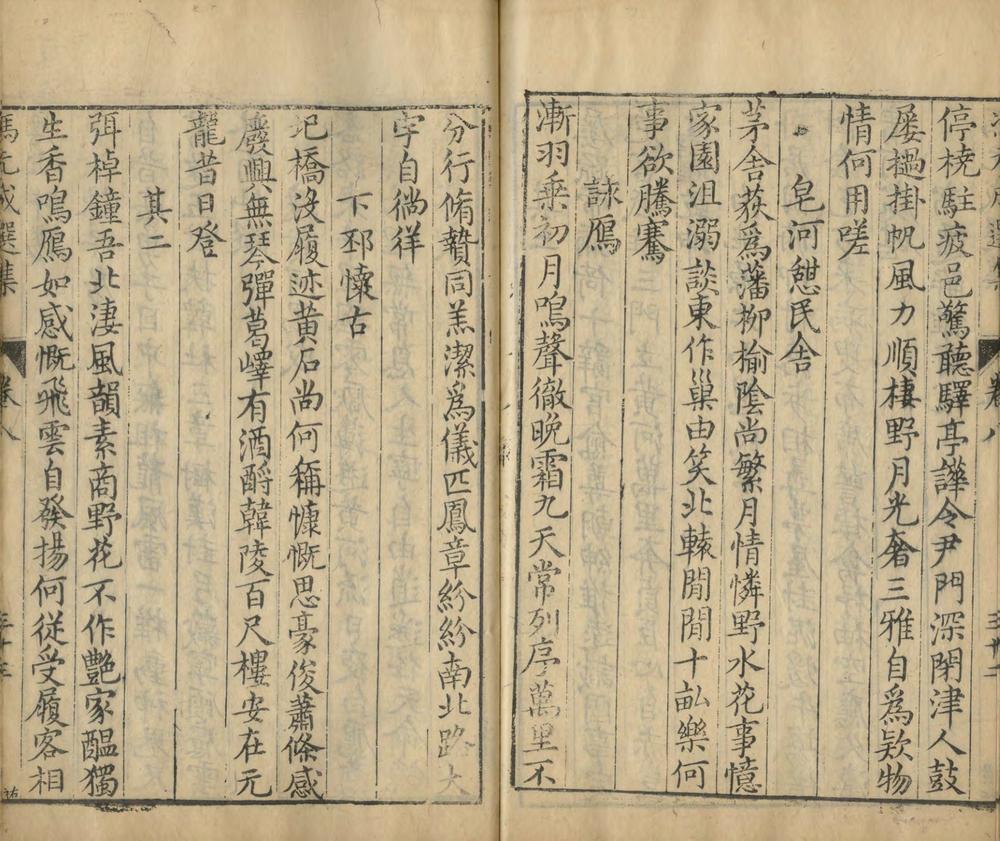 停橈駐疲邑驚聽驛亭譁令尹門深閉津人鼓
屡撾掛帆風力順棲野月光奢三雅自爲欵物
情何用嗟
皂河憇民舍
茅舍荻爲藩柳榆陰尚繁月情憐野水花事憶
家園沮溺談東作巢由笑北轅閒閒十畝樂何
事欲騰騫
詠鴈
漸羽乘初月鳴聲徹晚霜九天常列序萬里不
分行脩贄同羔潔爲儀匹鳳章紛紛南北路大
字自徜徉
下邳懷古
圯橋沒履迹黃石尚何稱慷慨思豪俊蕭條感
廢興無琴彈葛嶧有酒酹韓陵百尺樓安在元
龍昔日登
其二
弭棹鐘吾北淒風韻素商野花不作艷家醖獨
生香鳴鴈如感慨飛雲自發揚何從受履客相
馮元成選集
卷八